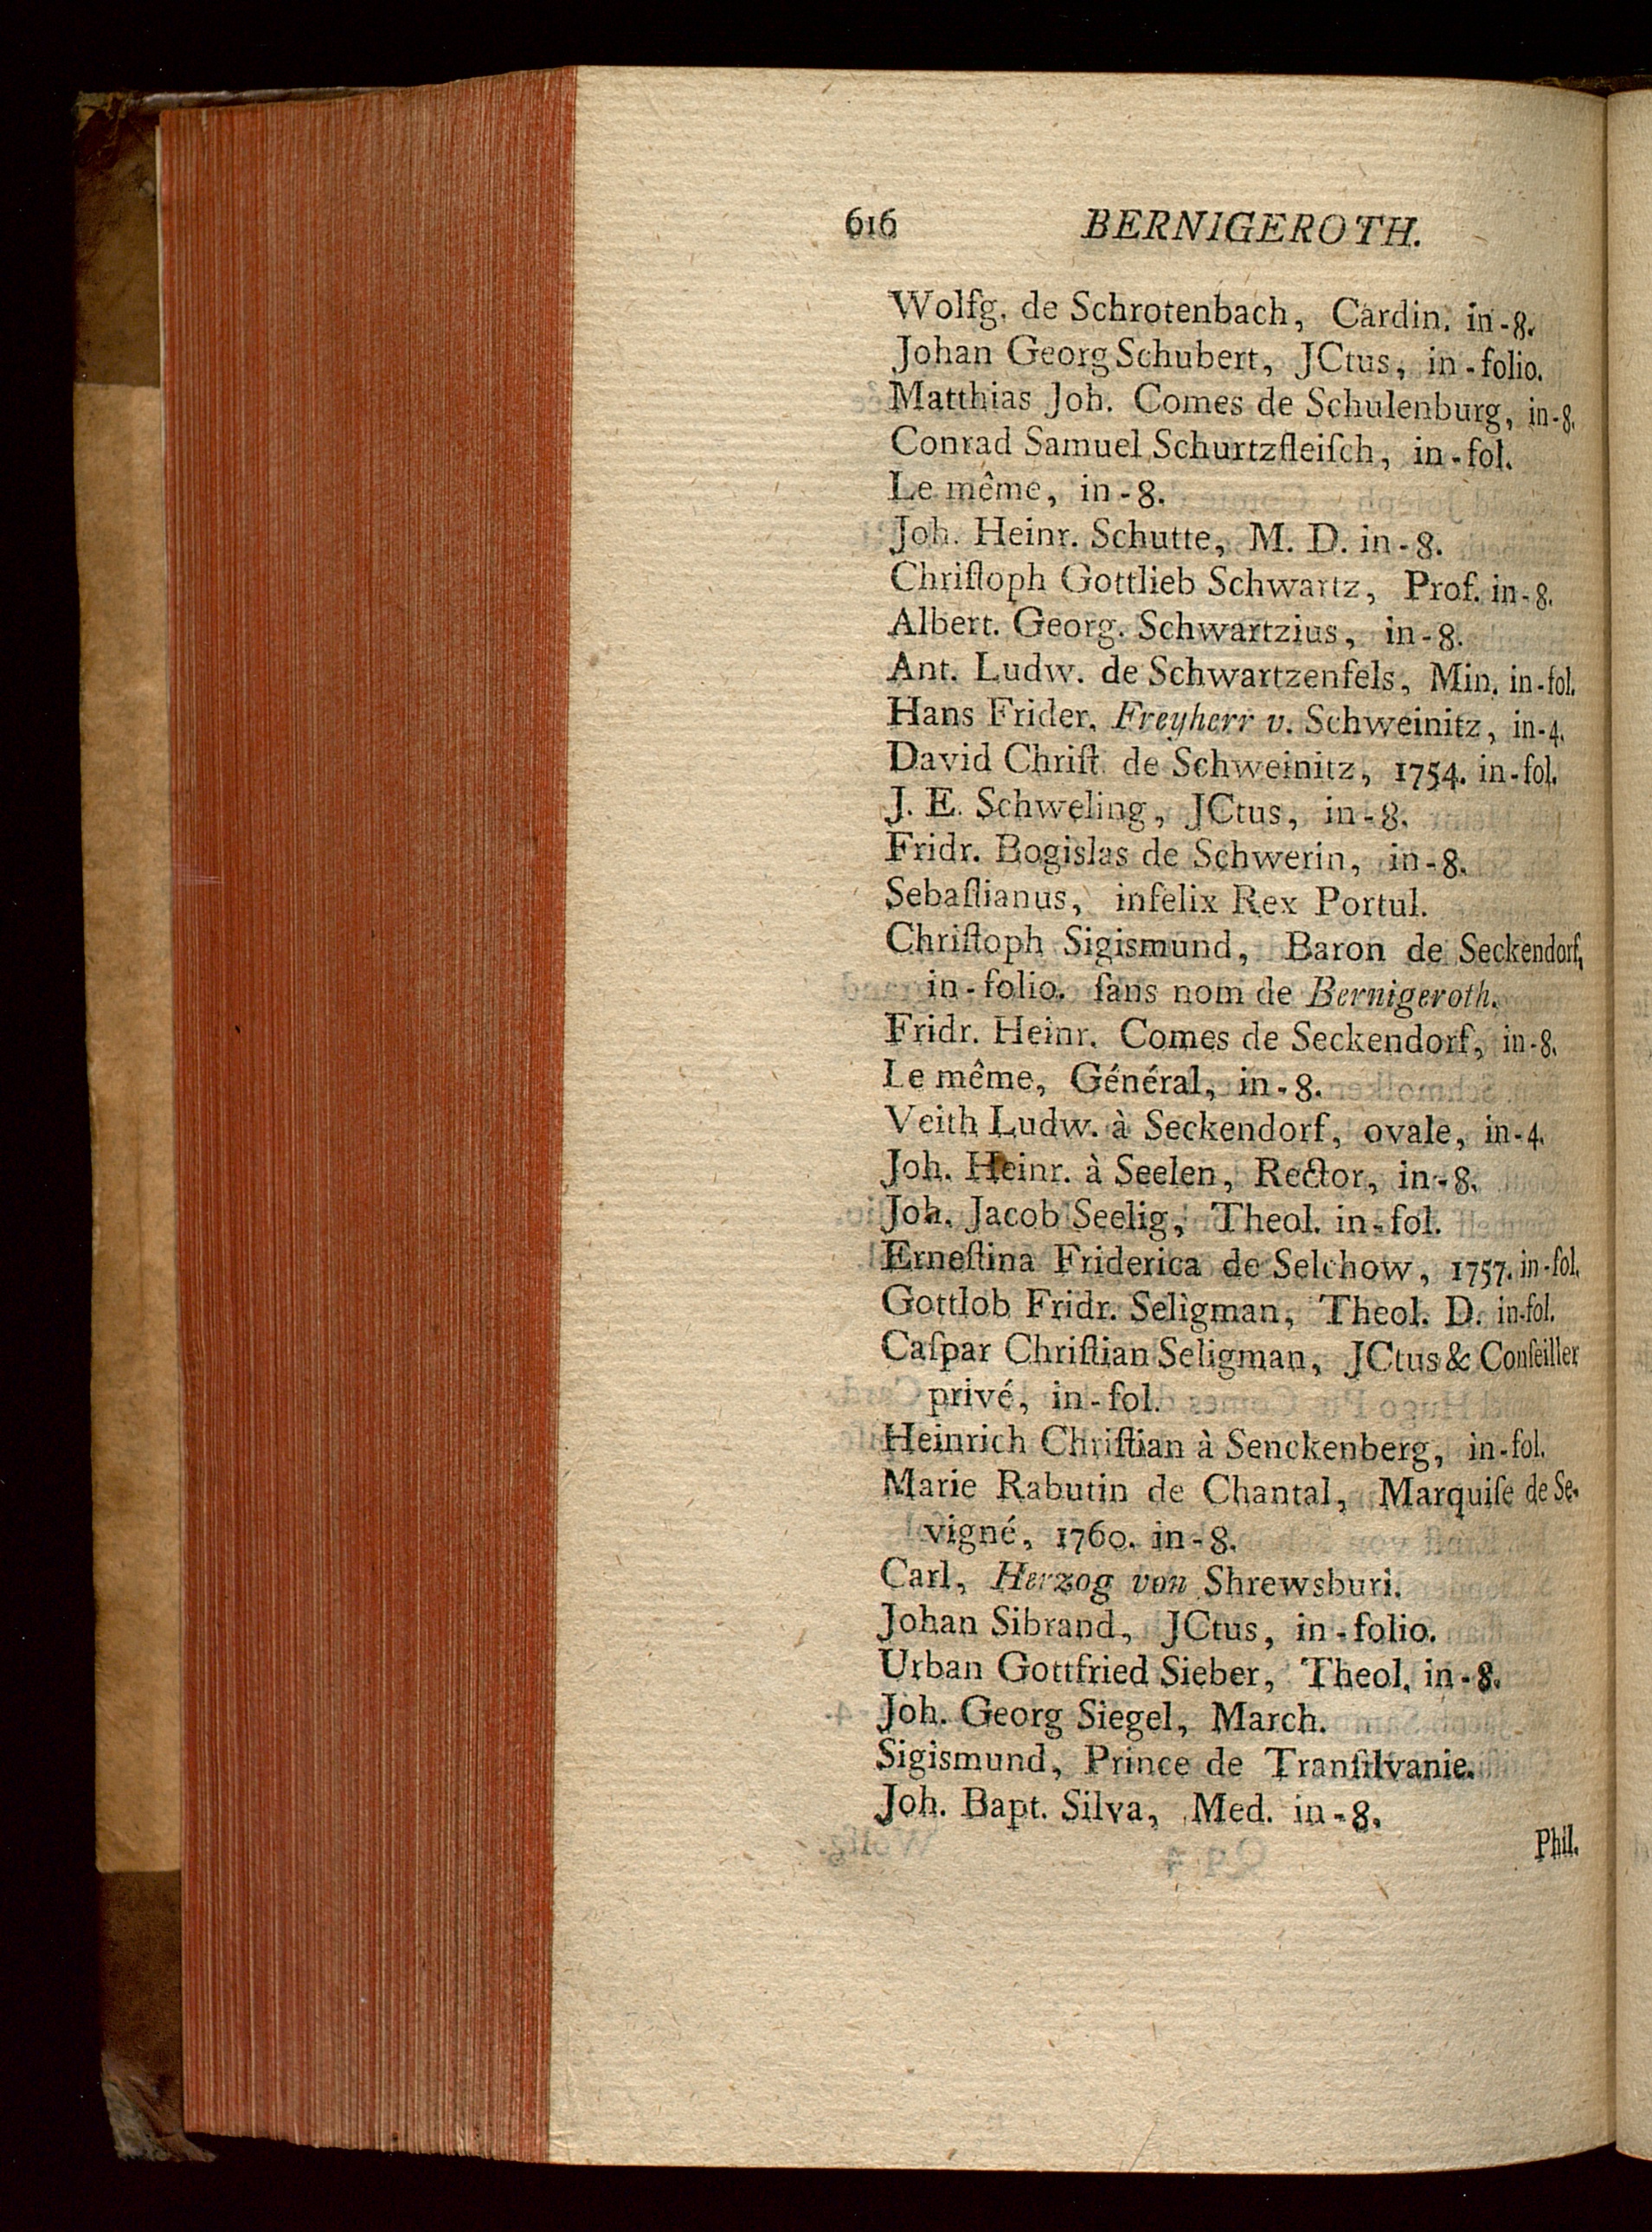 616 BERNIGEROTH.
Wolfg. de Schrotenbach, Cardin. in-8.
Johan Georg Schubert, JCtus, in-folio.
Matthias Joh. Comes de Schulenburg, in-8.
Conrad Samuel Schurtzfleiſch, in-fol.
Le même, in-8.
Joh. Heinr. Schutte, M. D. in-8.
Chriſtoph Gottlieb Schwartz, Prof. in-8.
Albert. Georg. Schwartzius, in-8.
Ant. Ludw. de Schwartzenfels, Min. in-fol.
Hans Frider. Freyherr v. Schweinitz, in-4.
David Chriſt. de Schweinitz, 1754. in-fol.
J. E. Schweling, JCtus, in-8.
Fridr. Bogislas de Schwerin, in-8.
Sebaſtianus, infelix Rex Portul.
Chriſtoph Sigismund, Baron de Seckendorf,
in-folio. ſans nom de Bernigeroth.
Fridr. Heinr. Comes de Seckendorf, in-8.
Le même, Général, in-8.
Veith Ludw. à Seckendorf, ovale, in-4.
Joh. Heinr. à Seelen, Rector, in-8.
Joh. Jacob Seelig, Theol. in-fol.
Erneſtina Friderica de Selchow, 1757. in-fol.
Gottlob Fridr. Seligman, Theol. D. in-fol.
Caſpar Chriſtian Seligman, JCtus & Conſeiller
privé, in-fol.
Heinrich Chriſtian à Senckenberg, in-fol.
Marie Rabutin de Chantal, Marquiſe de Se-
vigné, 1760. in-8.
Carl, Herzog von Shrewsburi.
Johan Sibrand, JCtus, in-folio.
Urban Gottfried Sieber, Theol. in-8.
Joh. Georg Siegel, March.
Sigismund, Prince de Tranſilvanie.
Joh. Bapt. Silva, Med. in-8.
Phil.